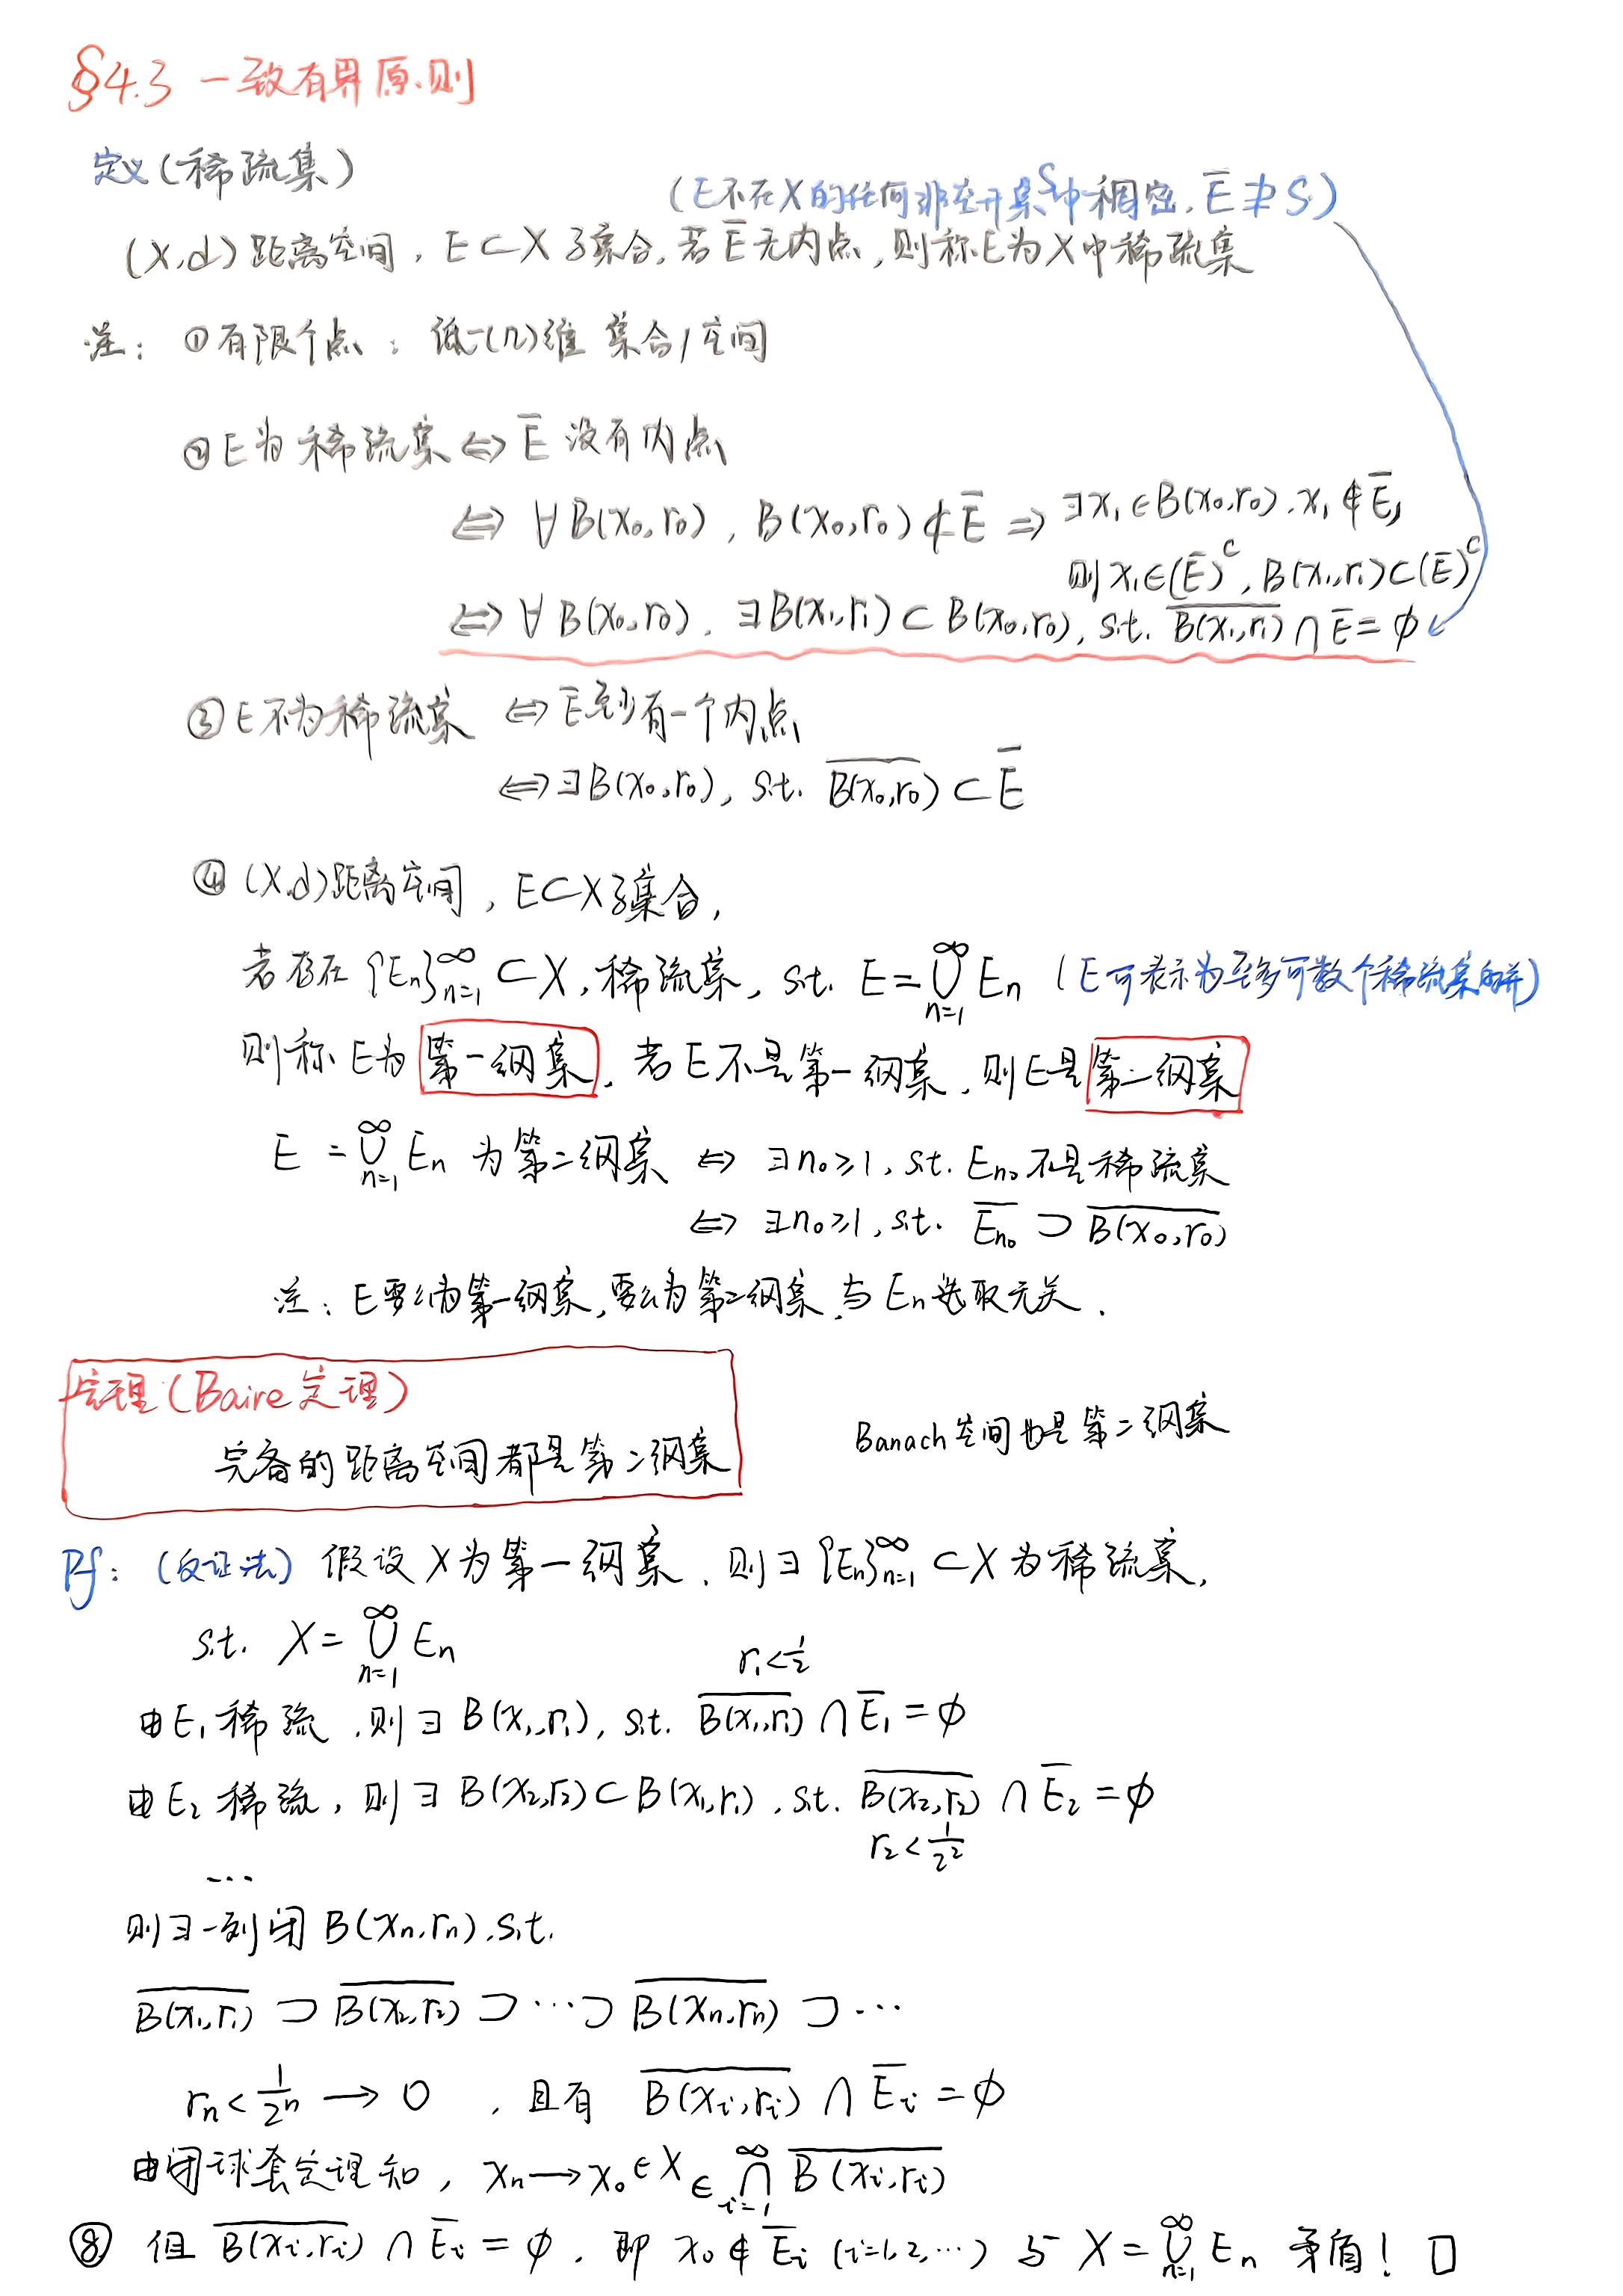 §4.3 一致有界原则
定义(稀疏集)
(E不在X的任何非空开集S中稠密, E̅ ⊉ S)
(X,d)距离空间, E⊂X子集合, 若E̅无内点, 则称E为X中稀疏集
注: ①有限个点; 低-(n)维 集合/空间
②E为稀疏集 ⇔ E̅ 没有内点
⇔ ∀B(x₀,r₀), B(x₀,r₀)⊄E̅ ⇒ ∃x₁∈B(x₀,r₀), x₁∉E̅,
则x₁∈(E̅)ᶜ, B(x₁,r₁)⊂(E̅)ᶜ
⇔ ∀B(x₀,r₀), ∃B(x₁,r₁)⊂B(x₀,r₀), s.t. \overline{B(x₁,r₁)}∩E̅=∅
③E不为稀疏集 ⇔ E̅至少有一个内点
⇔∃B(x₀,r₀), s.t. \overline{B(x₀,r₀)}⊂E̅
④(X,d)距离空间, E⊂X子集合,
若存在{Eₙ}_{n=1}^∞⊂X, 稀疏集, s.t. E=⋃_{n=1}^∞ Eₙ (E可表示为至多可数个稀疏集的并)
则称E为第一纲集, 若E不是第一纲集, 则E是第二纲集
E=⋃_{n=1}^∞ Eₙ 为第二纲集 ⇔ ∃n₀≥1, s.t. E_{n₀}不是稀疏集
⇔ ∃n₀≥1, s.t. \overline{E_{n₀}}⊃\overline{B(x₀,r₀)}
注: E要么为第一纲集, 要么为第二纲集, 与Eₙ选取无关.
定理(Baire定理)
完备的距离空间都是第二纲集
Banach空间也是第二纲集
Pf: (反证法) 假设X为第一纲集, 则∃{Eₙ}_{n=1}^∞⊂X为稀疏集,
s.t. X=⋃_{n=1}^∞ Eₙ
r₁<1/2
由E₁稀疏, 则∃B(x₁,r₁), s.t. \overline{B(x₁,r₁)}∩E̅₁=∅
由E₂稀疏, 则∃B(x₂,r₂)⊂B(x₁,r₁), s.t. \overline{B(x₂,r₂)}∩E̅₂=∅
r₂<1/2²
...
则∃一列闭B(xₙ,rₙ), s.t.
\overline{B(x₁,r₁)}⊃\overline{B(x₂,r₂)}⊃⋯⊃\overline{B(xₙ,rₙ)}⊃⋯
rₙ<1/2ⁿ→0, 且有 \overline{B(xᵢ,rᵢ)}∩E̅ᵢ=∅
由闭球套定理知, xₙ→x₀∈X ∈⋂_{i=1}^∞ \overline{B(xᵢ,rᵢ)}
⑧ 但 \overline{B(xᵢ,rᵢ)}∩E̅ᵢ=∅, 即 x₀∉E̅ᵢ (i=1,2,⋯) 与 X=⋃_{n=1}^∞ Eₙ 矛盾! □